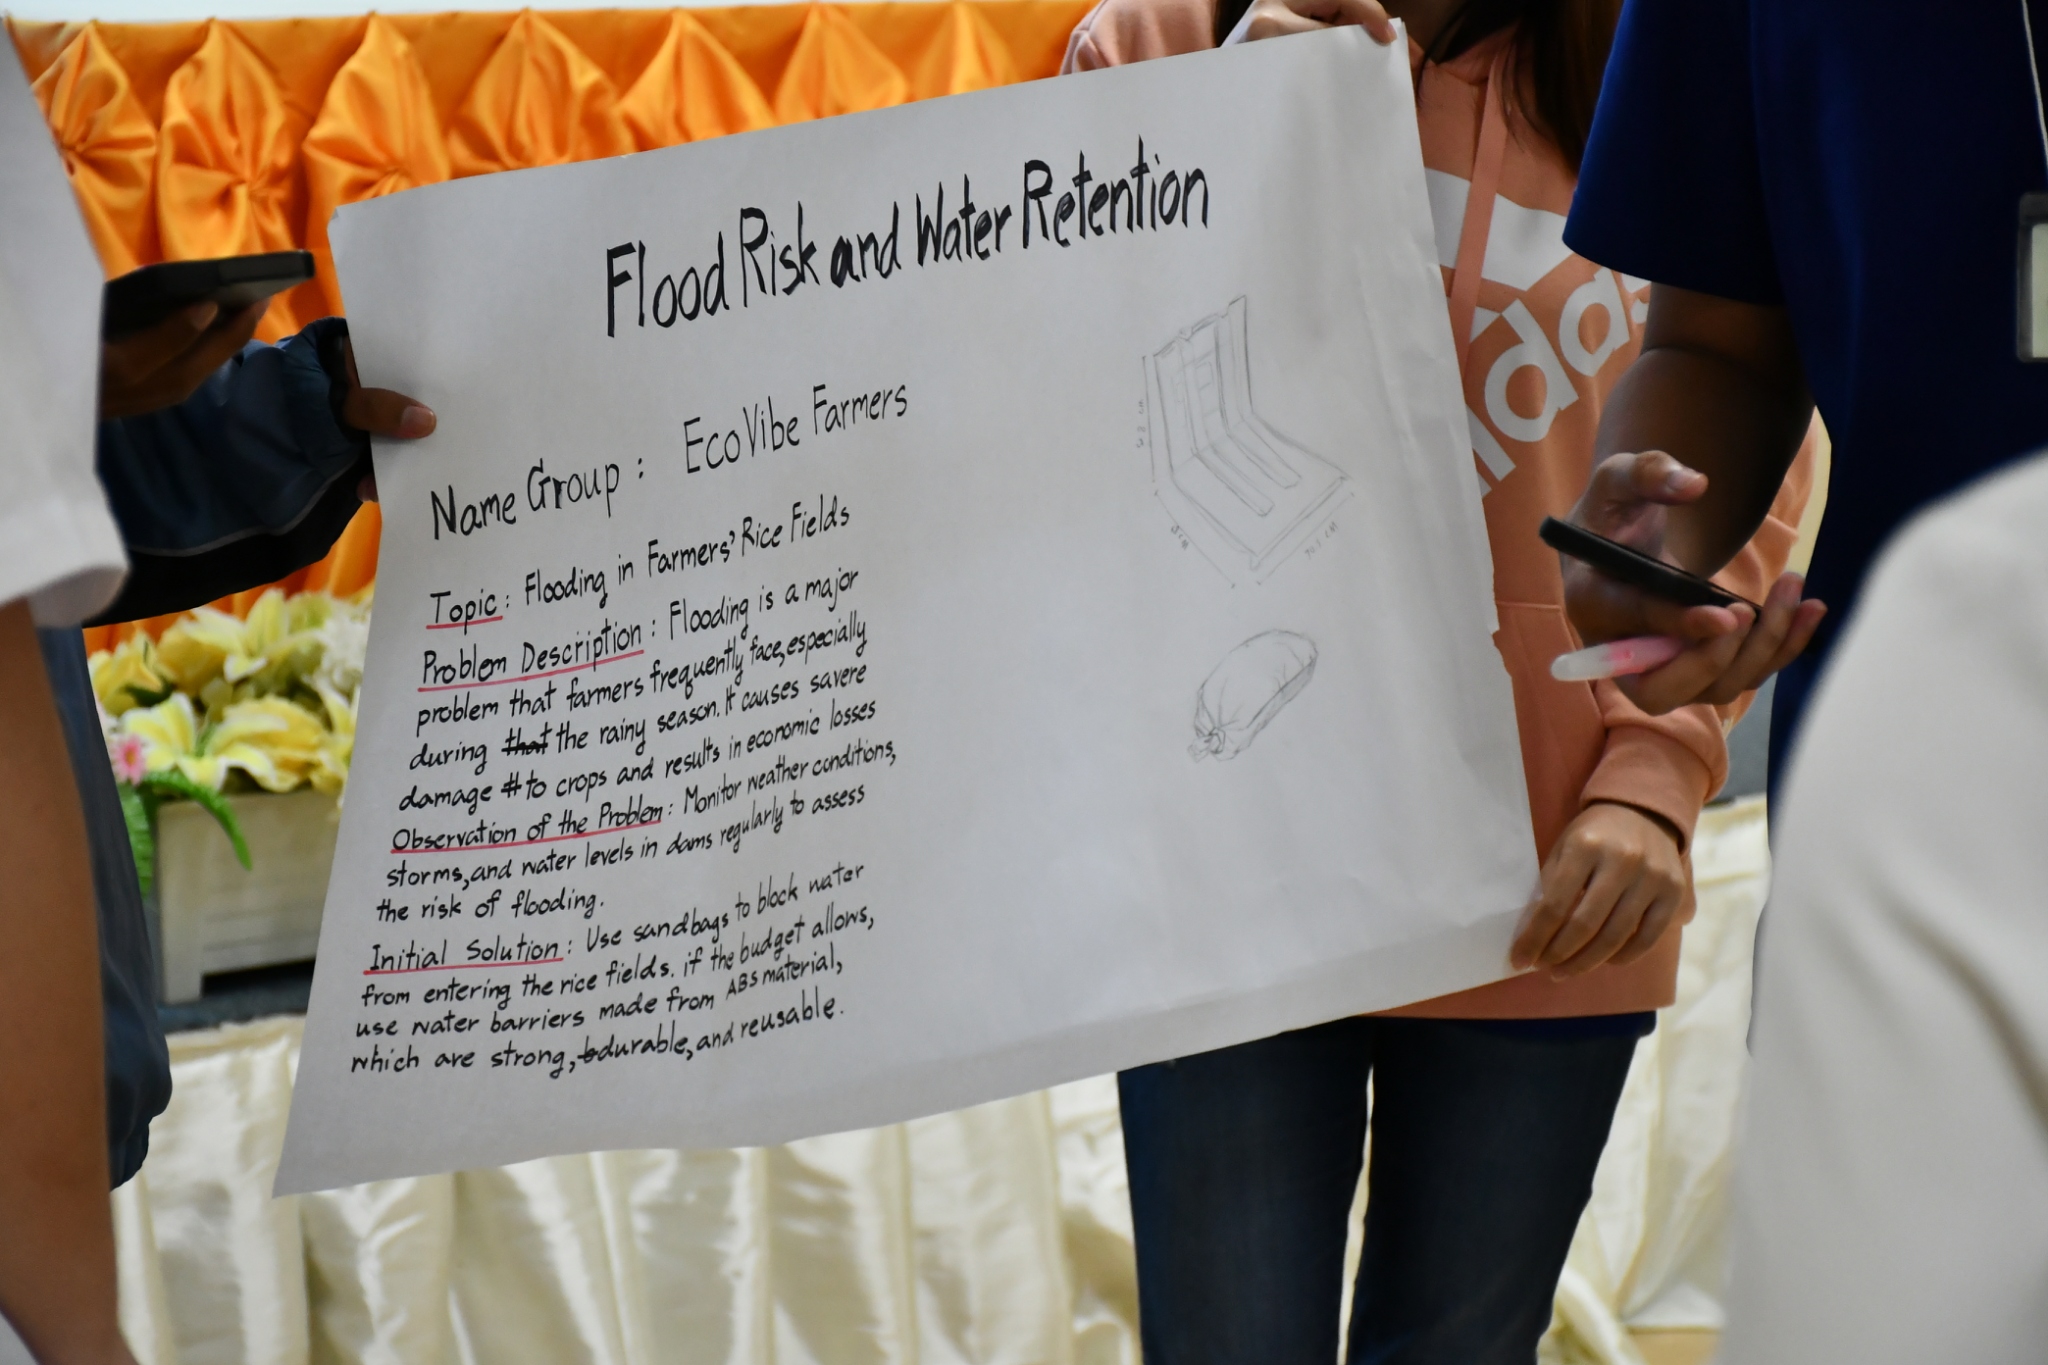 Flood Risk and Water Retention
Name Group : EcoVibe Farmers
Topic : Flooding in Farmers' Rice Fields
Problem Description : Flooding is a major
problem that farmers frequently face, especially
during that the rainy season. It causes savere
damage to crops and results in economic losses
Observation of the Problem : Monitor weather conditions,
storms, and water levels in dams regularly to assess
the risk of flooding.
Initial Solution : Use sandbags to block water
from entering the rice fields. if the budget allows,
use water barriers made from ABS material,
which are strong, durable, and reusable.
adidas